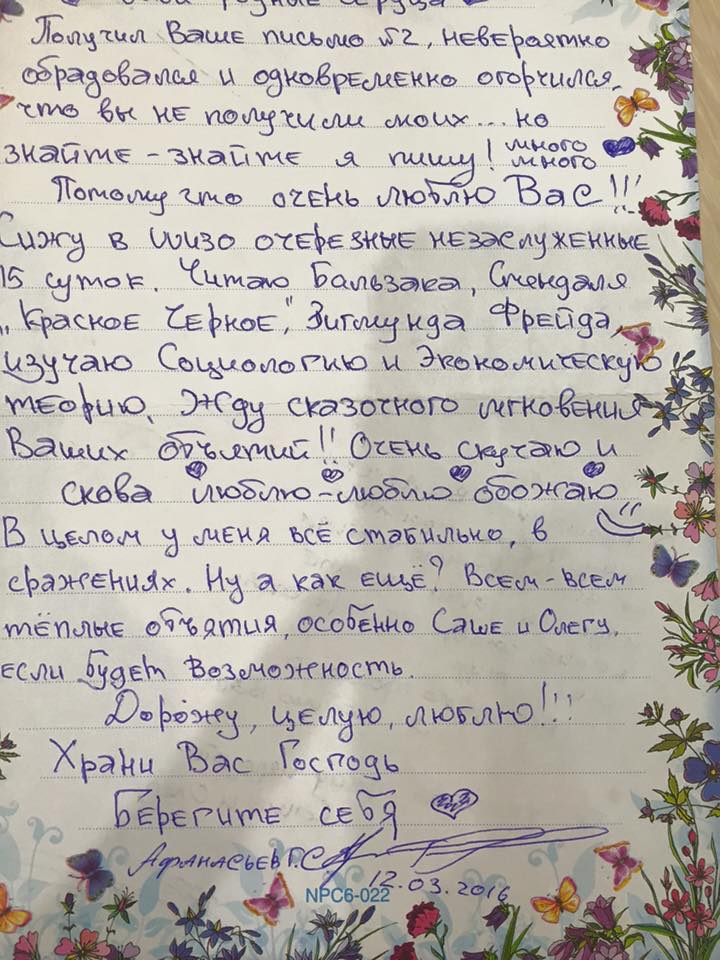 родные сердца
Получил Ваше письмо №2, невероятно
обрадовался и одновременно огорчился,
что вы не получили моих... но
знайте - знайте я пишу! много
много
Потому что очень люблю Вас!!!
Сижу в ШИЗО очерезные незаслуженные
15 суток. Читаю Бальзака, Стендаля
„Красное Черное", Зигмунда Фрейда,
изучаю Социологию и Экономическую
теорию. Жду сказочного мгновения
Ваших объятий!! Очень скучаю и
снова люблю-люблю обожаю
В целом у меня всё стабильно, в
сражениях. Ну а как ещё? Всем-всем
тёплые объятия, особенно Саше и Олегу,
если будет возможность.
Дорожу, целую, люблю!!!
Храни Вас Господь
Берегите себя
Афанасьев Г.С
12.03.2016
NPC6-022